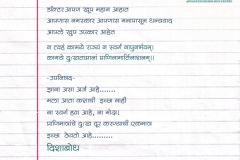 डॉक्टर आपण खूप महान आहात
आपणास नमस्कार आपणास मनापासून धन्यवाद
आपले खूप उपकार आहेत
न त्वहं कामये राज्यं न स्वर्गं नापुनर्भवम्
कामये दुःखतप्तानां प्राणिनामार्तिनाशनम्।।
-उपनिषद-
ज्ञाना असा अर्ज आहे.......
मला आता कशाची इच्छा नाही
ना स्वर्ग हवा आहे, ना मोक्ष।
प्राणिमात्रांचे दुःख दूर करण्याची एकमात्र
इच्छा ठेवतो आहे.........
दिशाबोध